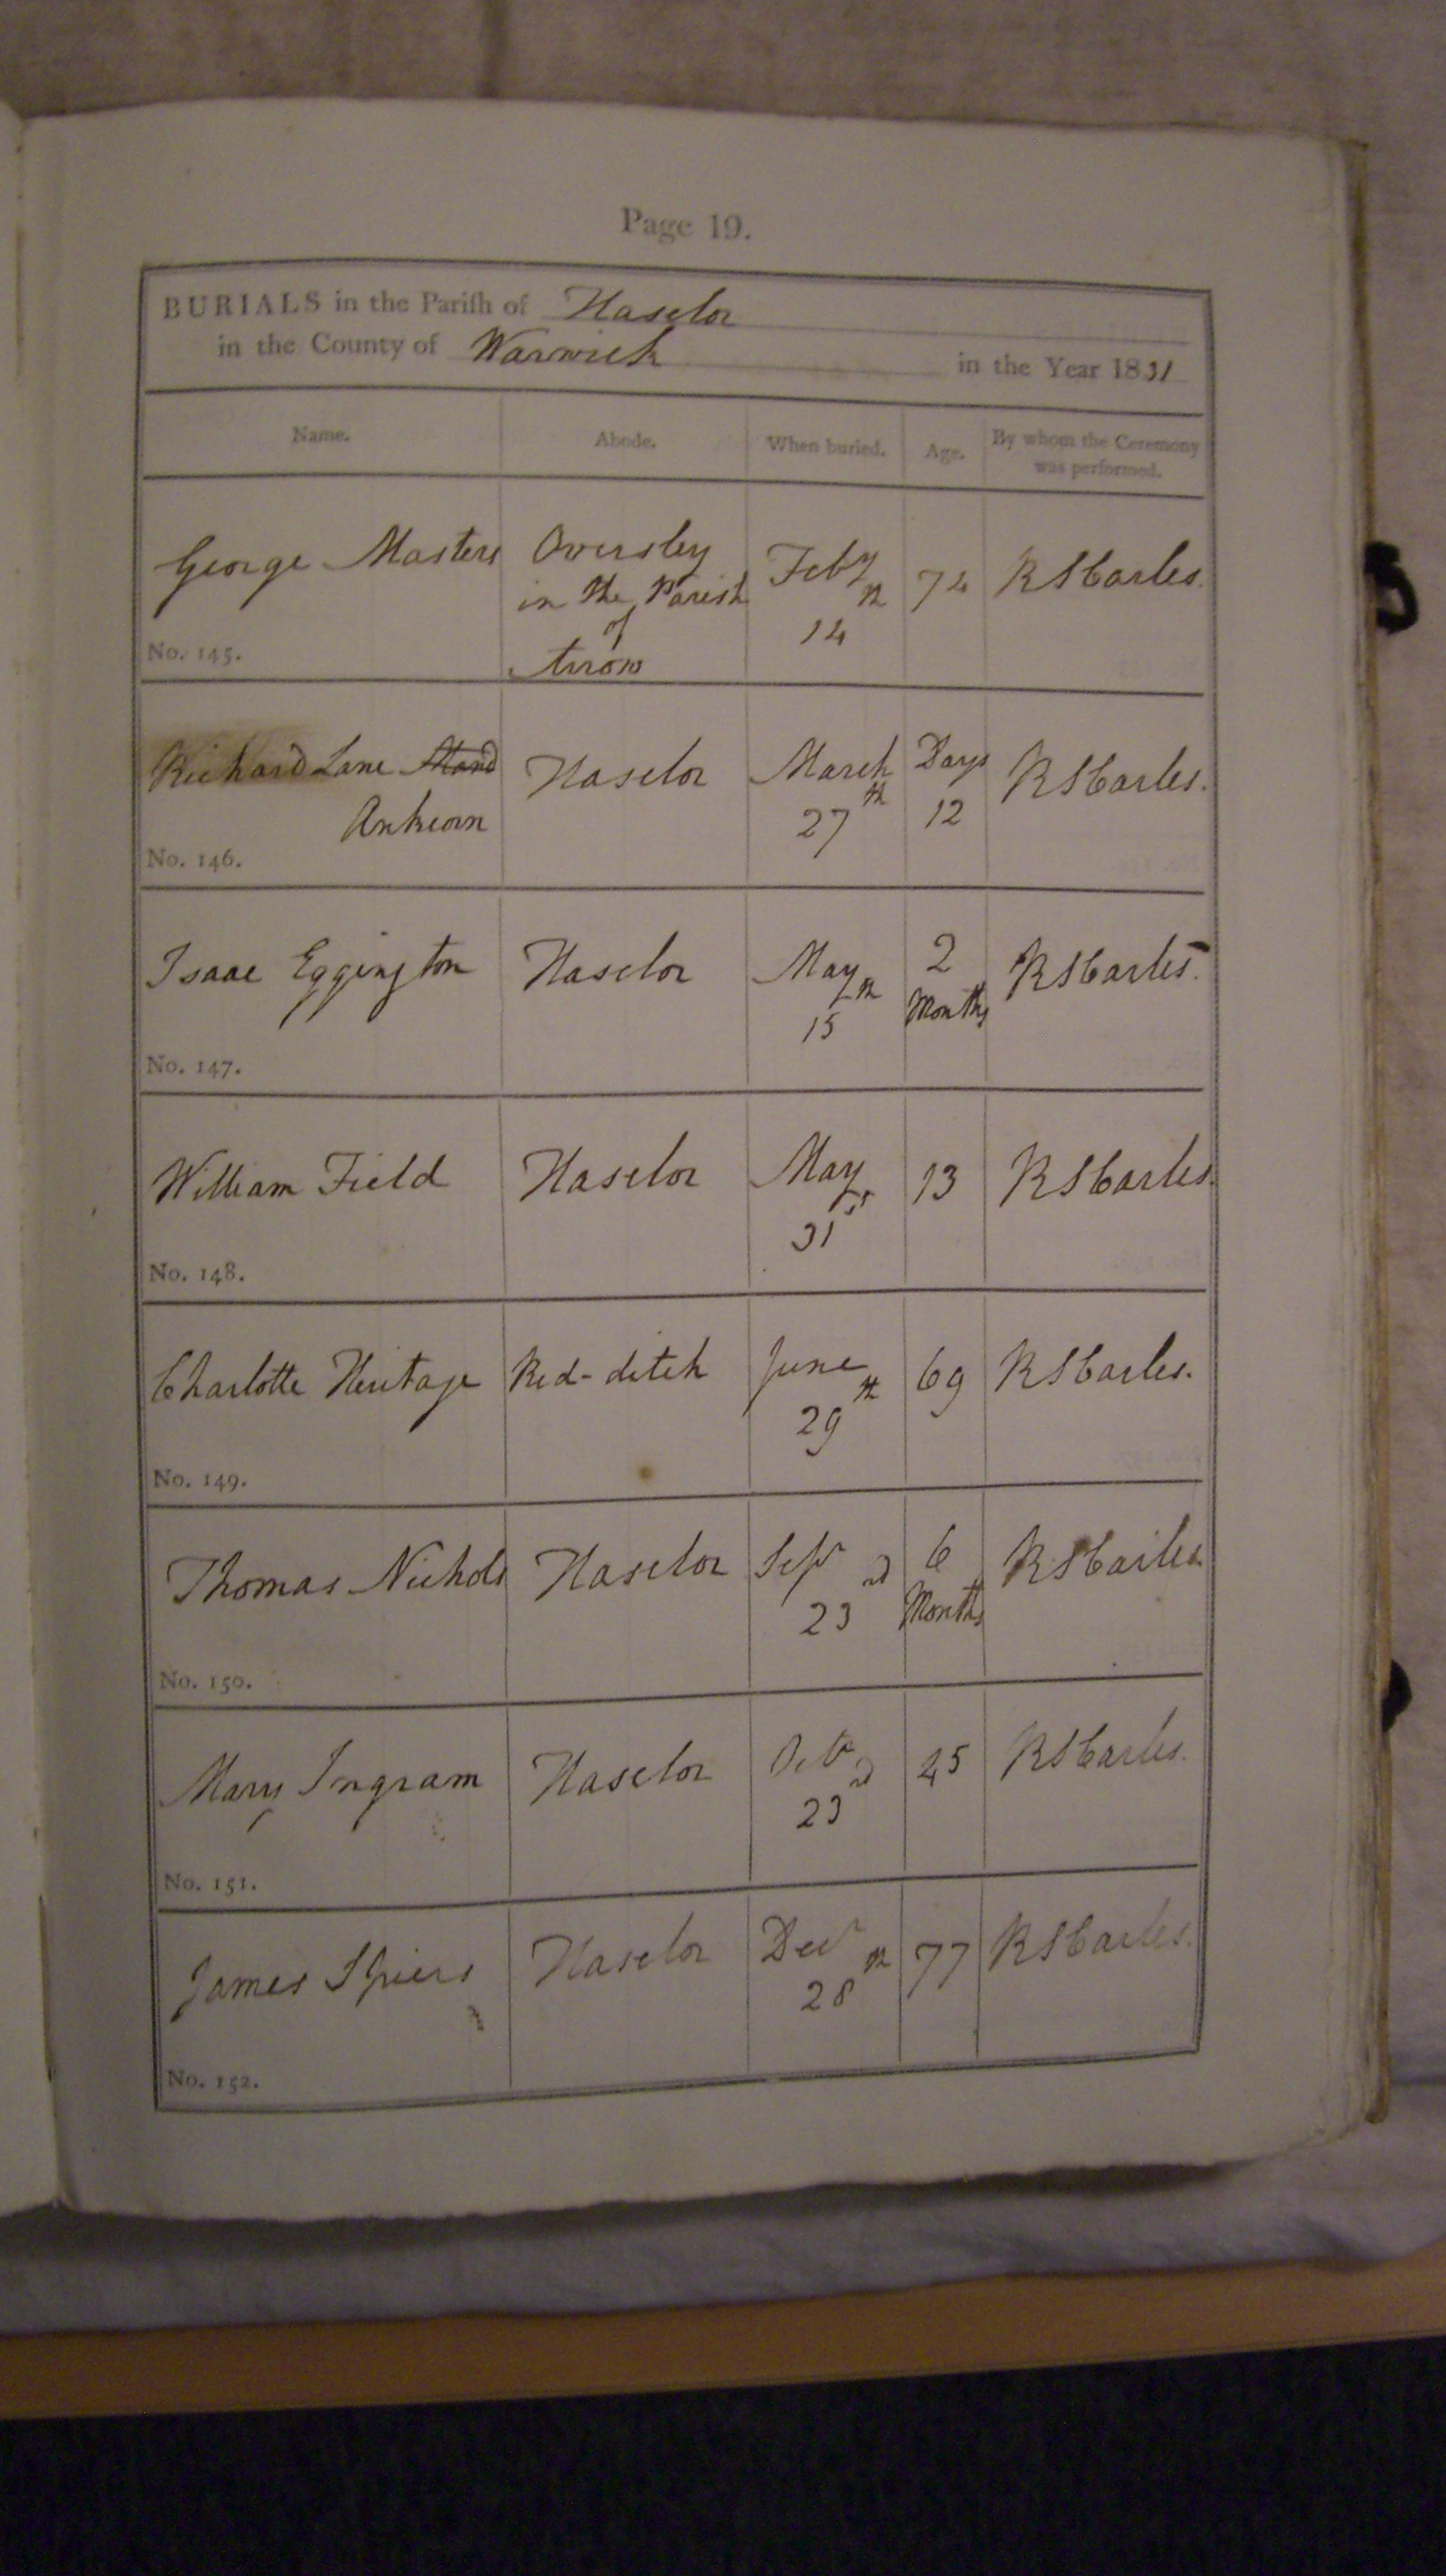 Page 19.
BURIALS in the Parish of Haselor
in the County of Warwick in the Year 1831
Name. Abode. When buried. Age. By whom the Ceremony was performed.
George Masters
No. 145.
Oversley
in the Parish
of
Arrow
Feby
14th
74
RSCarles.
Richard Lane
No. 146.
Haselor
March
27th
Days
12
RSCarles.
Isaac Eggington
No. 147.
Haselor
May
15th
2
Months
RSCarles.
William Field
No. 148.
Haselor
May
31st
13
RSCarles.
Charlotte Heritage
No. 149.
Red-ditch
June
29th
69
RSCarles.
Thomas Nichols
No. 150.
Haselor
Sepr
23d
6
Months
RSCarles.
Mary Ingram
No. 151.
Haselor
Octr
23d
45
RSCarles.
James Spiers
No. 152.
Haselor
Decr
28th
77
RSCarles.